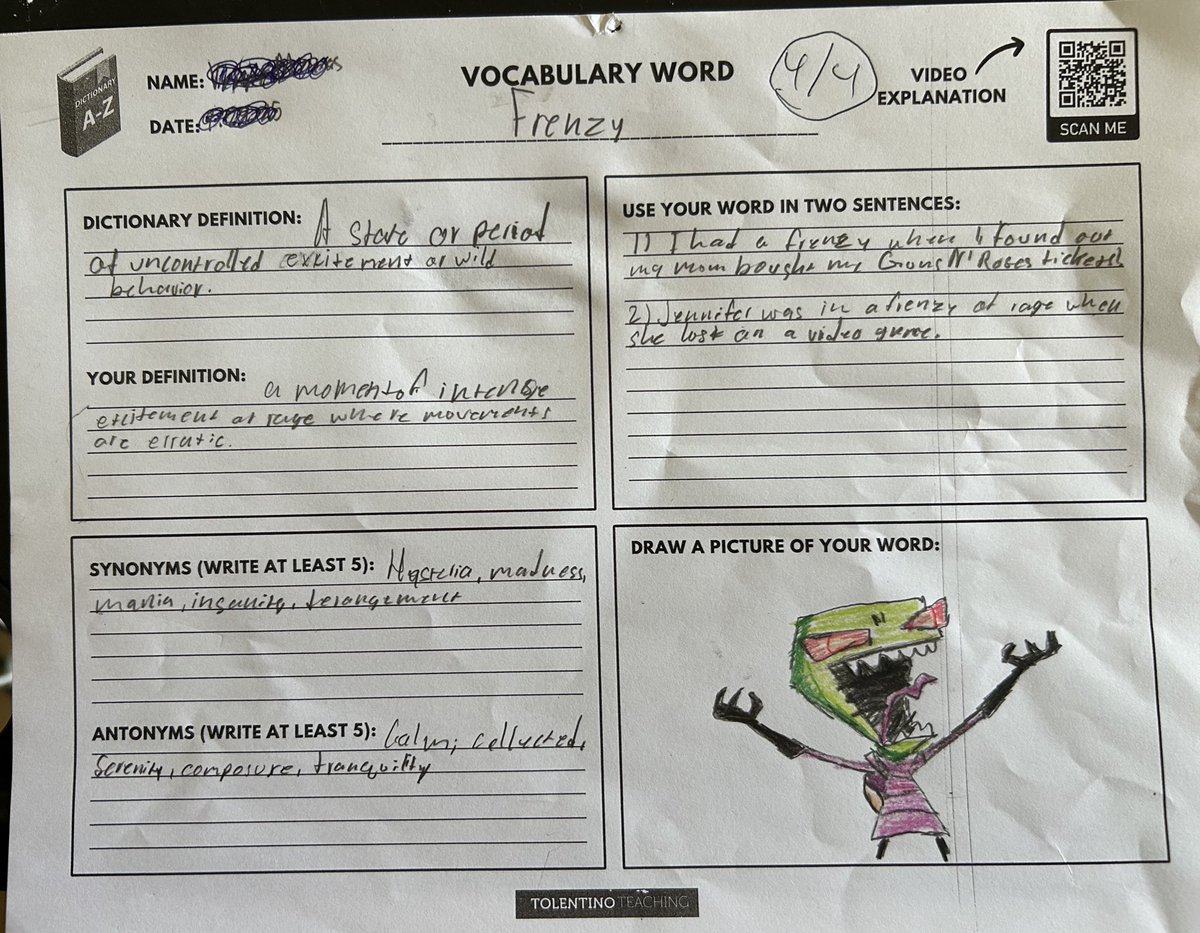 DICTIONARY
A-Z
NAME:
DATE:
VOCABULARY WORD
Frenzy
4/4
VIDEO
EXPLANATION
SCAN ME
DICTIONARY DEFINITION: A state or period
of uncontrolled excitement or wild
behavior.
YOUR DEFINITION: a moment of intense
excitement or rage where movements
are erratic.
USE YOUR WORD IN TWO SENTENCES:
1) I had a frenzy when I found out
my mom bought me Guns N' Roses tickets!
2) Jennifer was in a frenzy of rage when
she lost on a video game.
SYNONYMS (WRITE AT LEAST 5): Hysteria, madness,
mania, insanity, derangement
ANTONYMS (WRITE AT LEAST 5): Calm, collected,
Serenity, composure, tranquility
DRAW A PICTURE OF YOUR WORD:
TOLENTINO TEACHING